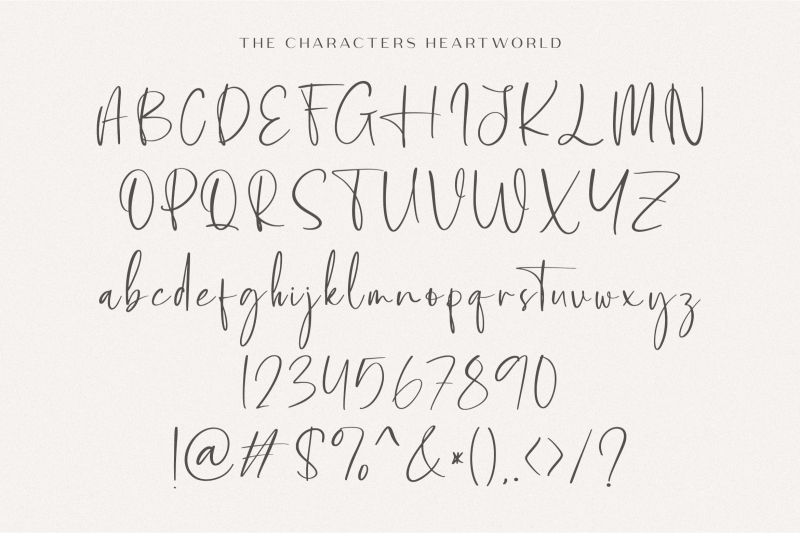 THE CHARACTERS HEARTWORLD
ABCDEFGHIJKLMN
OPQRSTUVWXYZ
abcdefghijklmnopqrstuvwxyz
1234567890
!@#$%^&*(),.<>/?